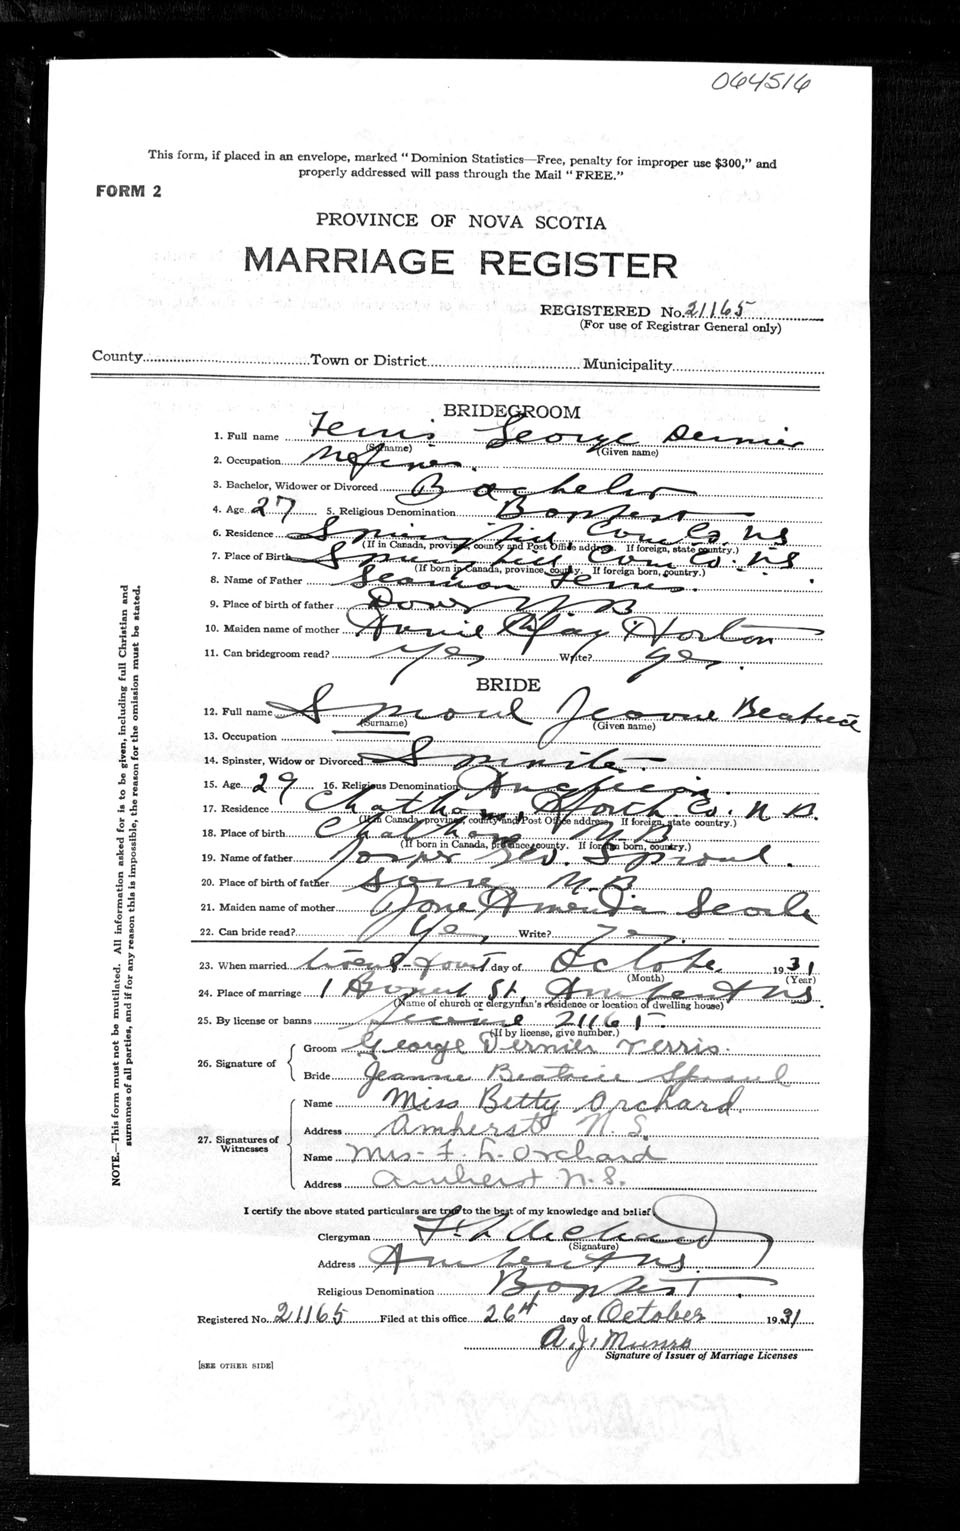 064516
This form, if placed in an envelope, marked "Dominion Statistics—Free, penalty for improper use $300," and
properly addressed will pass through the Mail "FREE."
FORM 2
PROVINCE OF NOVA SCOTIA
MARRIAGE REGISTER
REGISTERED No. 21165
(For use of Registrar General only)
County Town or District Municipality
BRIDEGROOM
1. Full name Ferris George Dernier
(Surname) (Given name)
2. Occupation
3. Bachelor, Widower or Divorced Bachelor
4. Age 27 5. Religious Denomination Baptist
6. Residence Springhill Cum Co. NS
(If in Canada, province, county and Post Office address. If foreign, state country.)
7. Place of Birth Springhill Cum Co. NS
(If born in Canada, province, county. If foreign born, country.)
8. Name of Father Seaman Ferris.
9. Place of birth of father N B
10. Maiden name of mother Annie May Horton
11. Can bridegroom read? yes Write? yes.
BRIDE
12. Full name Sproul Jeanne Beatrice
(Surname) (Given name)
13. Occupation
14. Spinster, Widow or Divorced Spinster
15. Age 29 16. Religious Denomination Anglican.
17. Residence Chatham, North Co. N B.
(If in Canada, province, county and Post Office address. If foreign, state country.)
18. Place of birth Chatham N B
(If born in Canada, province, county. If foreign born, country.)
19. Name of father Geo. Sproul.
20. Place of birth of father Same N. B
21. Maiden name of mother Jane Amenda Searle
22. Can bride read? Yes, Write? Yes.
23. When married twenty-fourt day of October 1931
(Month) (Year)
24. Place of marriage 1 St, Amherst NS.
(Name of church or clergyman's residence or location of dwelling house)
25. By license or banns License 21165.
(If by license, give number.)
26. Signature of
Groom George Dernier Ferris.
Bride Jeanne Beatrice Sproul
27. Signatures of Witnesses
Name Miss Betty Orchard
Address Amherst N. S.
Name Mrs. F. L. Orchard
Address Amherst N. S.
I certify the above stated particulars are true to the best of my knowledge and belief
Clergyman F. L. Orchard
(Signature)
Address Amherst NS.
Religious Denomination Baptist.
Registered No. 21165 Filed at this office 26th day of October 1931
A. J. Munro
Signature of Issuer of Marriage Licenses
[SEE OTHER SIDE]
NOTE.—This form must not be mutilated. All information asked for is to be given, including full Christian and
surnames of all parties, and if for any reason this is impossible, the reason for the omission must be stated.